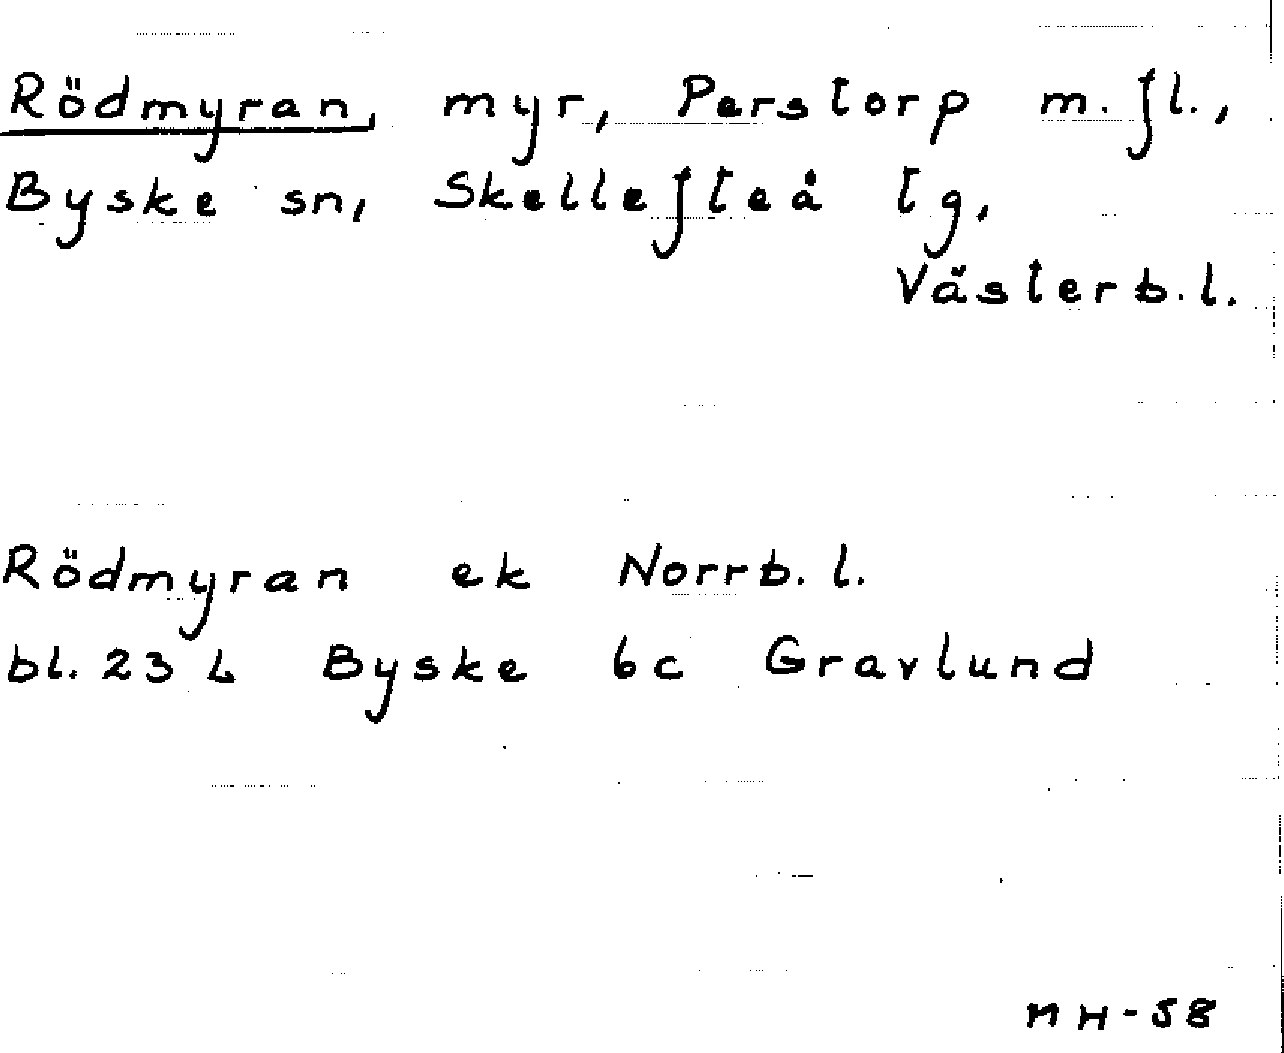 Rödmyran, myr, Perstorp m.fl.,
Byske sn, Skellefteå tg,
Västerb.l.
Rödmyran ek Norrb.l.
bl. 23 L Byske 6c Gravlund
MH-58